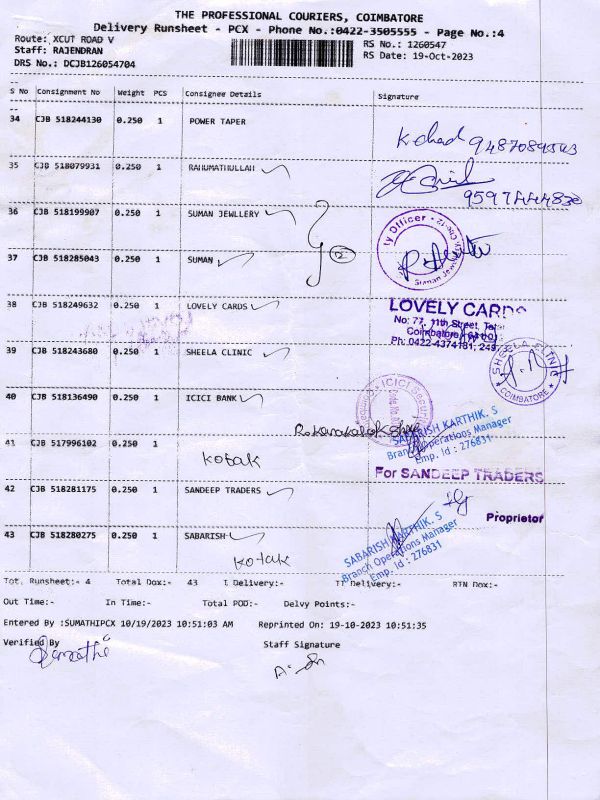 THE PROFESSIONAL COURIERS, COIMBATORE
Delivery Runsheet - PCX - Phone No.:0422-3505555 - Page No.:4
Route: XCUT ROAD V
RS No.: 1260547
Staff: RAJENDRAN
RS Date: 19-Oct-2023
DRS No.: DCJB126054704
S No Consignment No Weight PCS Consignee Details Signature
34 CJB 518244130 0.250 1 POWER TAPER
35 CJB 518079931 0.250 1 RAHUMATHULLAH
36 CJB 518199907 0.250 1 SUMAN JEWLLERY
37 CJB 518285043 0.250 1 SUMAN
38 CJB 518249632 0.250 1 LOVELY CARDS
LOVELY CARDS
No: 77, 11th Street,
Coimbatore
Ph: 0422-4374181,
39 CJB 518243680 0.250 1 SHEELA CLINIC
SHEELA CLINIC
COIMBATORE
40 CJB 518136490 0.250 1 ICICI BANK
ICICI
SABARISH KARTHIK. S
Branch Operations Manager
Emp. Id : 276831
41 CJB 517996102 0.250 1
kotak
For SANDEEP TRADERS
42 CJB 518281175 0.250 1 SANDEEP TRADERS
Proprietor
43 CJB 518280275 0.250 1 SABARISH
kotak
SABARISH KARTHIK. S
Branch Operations Manager
Emp. Id : 276831
Tot. Runsheet:- 4 Total Dox:- 43 T Delivery:- TT Delivery:- RTN Dox:-
Out Time:- In Time:- Total POD:- Delvy Points:-
Entered By :SUMATHIPCX 10/19/2023 10:51:03 AM Reprinted On: 19-10-2023 10:51:35
Verified By Staff Signature